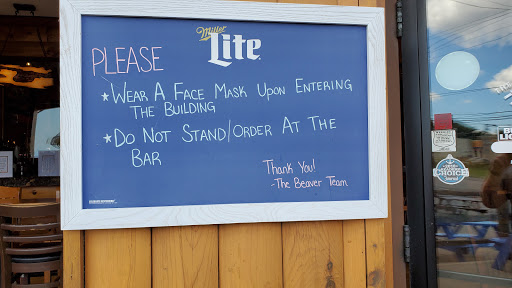 Miller
Lite
PLEASE
★WEAR A FACE MASK UPON ENTERING
THE BUILDING
★DO NOT STAND/ORDER AT THE
BAR
THANK YOU!
-THE BEAVER TEAM
CHOICE